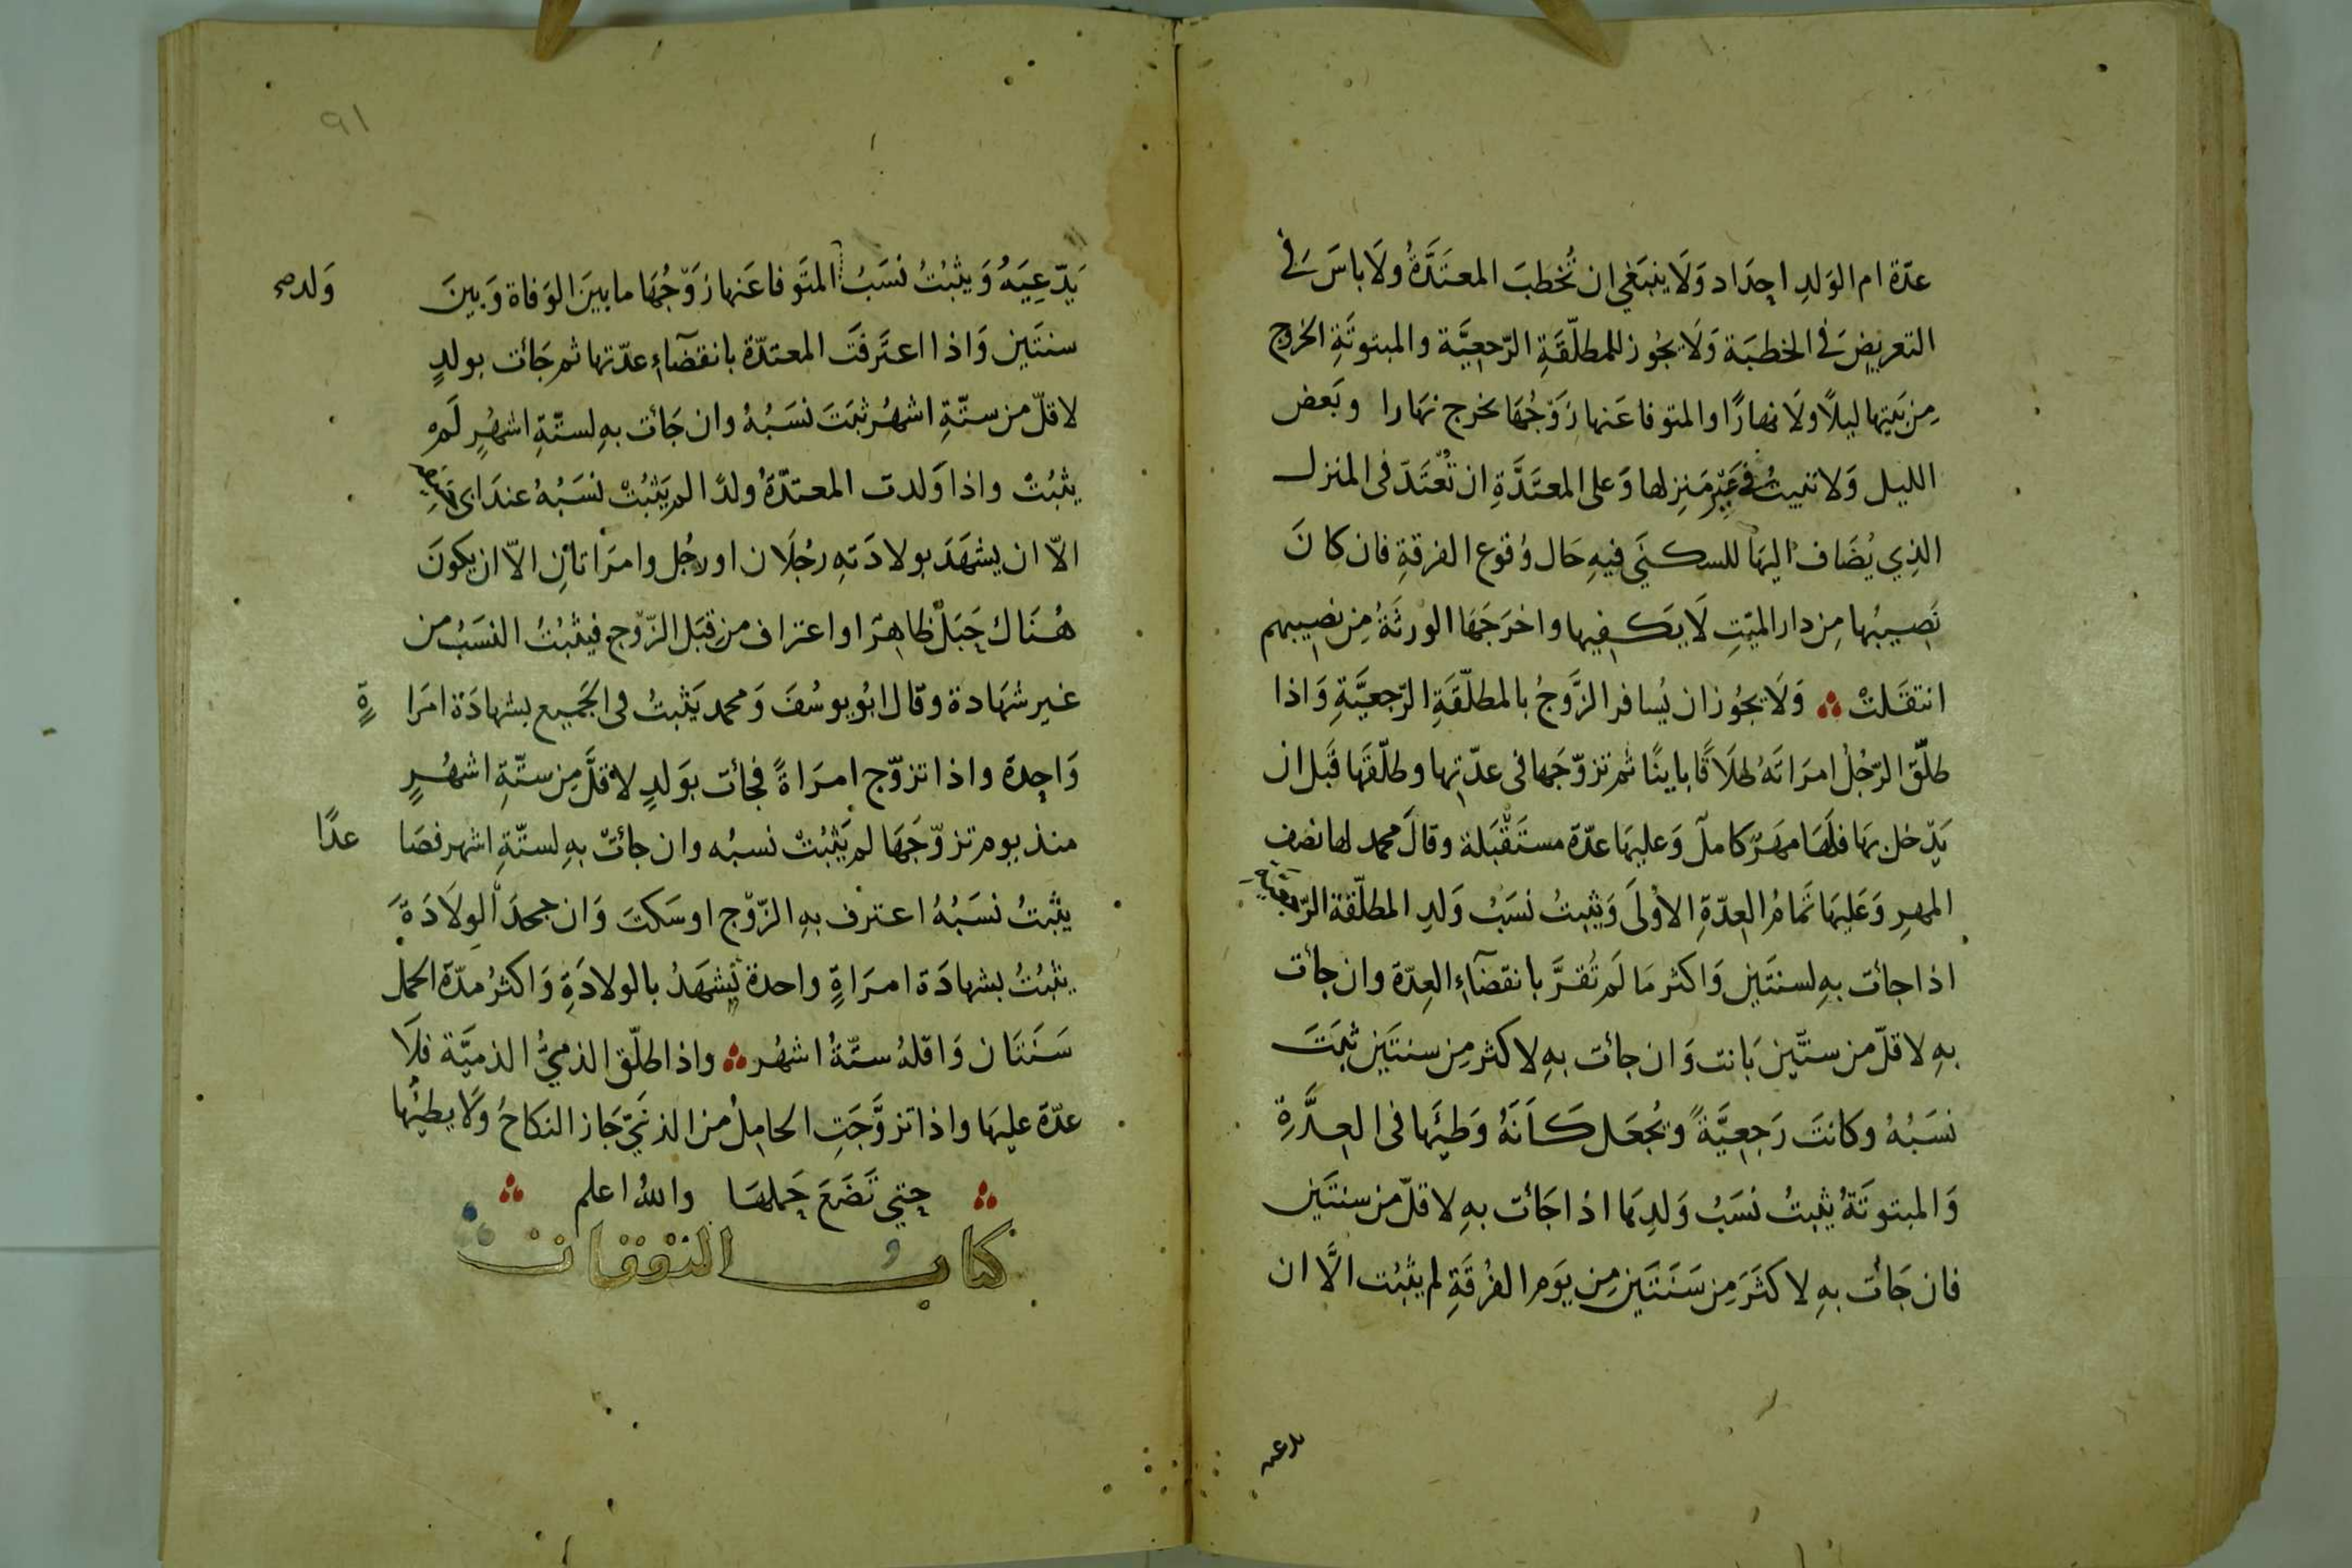 عدّة ام الوَلدِ احدَاد وَلَا ينبَغي ان تُخطبَ المعتَدَّةُ ولَا باسَ فى
التعريضِ فى الخطبَة وَلَا يجُوز للمطلّقَةِ الرّجعِيَّة والمبتوتَةِ الخروج
مِن بَيتِها ليلًا ولَا نهارًا والمتوفا عَنها زَوْجُهَا تخرج نهَارا وبَعض
الليل وَلا تبيتُ فى غَيْرِ مَنزِلها وَعلى المعتَدَّةِ ان تُعْتَدّ فى المنزل
الذِي يُضَاف اليهَا للسكنَى فيهِ حَال وُقوع الفرقةِ فان كانَ
نَصِيبُها مِن دار الميّتِ لَا يَكفِيها واخرَجَهَا الورثَةُ مِن نصِيبهم
انتقَلتْ وَلَا يجُوز ان يُسافر الزَّوجُ بالمطلّقَةِ الرّجعيَّةِ وَاذا
طلّق الرّجُلُ امرَاتَهُ طلَاقًا باينًا ثم تزوّجَها فى عدّتِها وطلّقَها قَبل ان
يَدّخل بهَا فلَهَا مهَرٌ كاملٌ وَعليهَا عدّة مستَقْبَلة وقالَ محمد لها نصف
المهرِ وَعَليهَا تمامُ العِدّةِ الاوْلَى وَيثبتُ نسَبُ وَلدِ المطلّقة الرّجعية
اذا جائت بهِ لسنتَين وَاكثر مَا لَم تُقرَّ بانقضَاءِ العِدّة وان جائت
بهِ لاقلّ من سنتَين بَانت وَان جائت بهِ لاكثر مِن سنتَين ثبَتَ
نسَبُهُ وكانتَ رَجعِيَّةً ويُجعَل كَاَنَهُ وَطِئَها فى العِدَّةِ
وَالمبتوتَةُ يثبتُ نسَبُ وَلدِهَا اذا جَائت بهِ لاقلّ من سنتَين
فان جَائت بهِ لاكثَرَ مِن سَنَتَين مِن يَوم الفُرقَةِ لم يثبُت الَّا ان
يدعيه
٩١
يَدّعِيَهُ وَيثبُتُ نسَبُ المتَوفا عَنها زوّجُهَا ما بينَ الوَفاة وَبينَ
وَلد صح
سنتَين وَاذا اعتَرفَت المعتدّة بانقضَاءِ عدّتها ثم جَائت بولدٍ
لاقلّ من ستّةِ اشهُر ثبَتَ نسَبُهُ وان جَائت بهِ لستّةِ اشهُرٍ لَم
يثبُتْ واذا وَلدت المعتدّةُ ولدًا لم يَثبُتْ نسَبُهُ عندَ ابى حنيفة
الاّ ان يشهَدَ بولادَتهِ رجُلَان او رجُل وامرَاتانِ الاّ ان يكونَ
هُنَاك حَبَلٌ ظاهِرًا او اعتراف من قِبَل الزّوْج فيثبُتُ النسَبُ من
غير شهَادة وقال ابُو يوسُفَ وَمحمد يَثبتُ فى الجَميع بشهادَة امرَا
ةٍ
وَاحِدة واذا تزوّج امرَاةً فجائت بوَلدٍ لاقلَّ مِن ستّةِ اشهُرٍ
منذ يوم تزوّجَهَا لم يَثبُتْ نسبُه وان جائتْ بهِ لستّةِ اشهر فصَا
عدًا
يثبتُ نسَبُهُ اعترف بهِ الزّوْج او سَكتَ وَان جحدَ الوِلَادَةَ
يثبُتُ بشهادَة امرَاةٍ واحدة تشهَدُ بالولادَةِ وَاكثرُ مدّة الحمل
سَنَتَان وَاقلهُ ستّةُ اشهُر واذا طلّق الذميُّ الذميَّة فلَا
عدّة عليهَا واذا تزوَّجَتِ الحامِلُ من الزنَى جَاز النكاحُ ولَا يطِئُها
حتى تَضَعَ حَملهَا واللهُ اعلم
كتاب النفقات